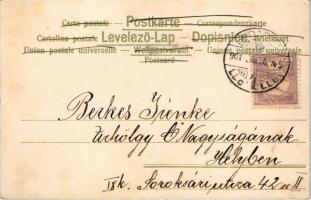 Carte postale — Postkarte — Correspondenzkarte
Cartolina postale — Levelező-Lap — Dopisnice. Brefkort
Union postale universelle — Weltpostverein — Union postale universale
Postcard
Berkes Irénke
Úrhölgy Ő Nagyságának
Helyben
IXk. Soroksári utcza 42 sz II